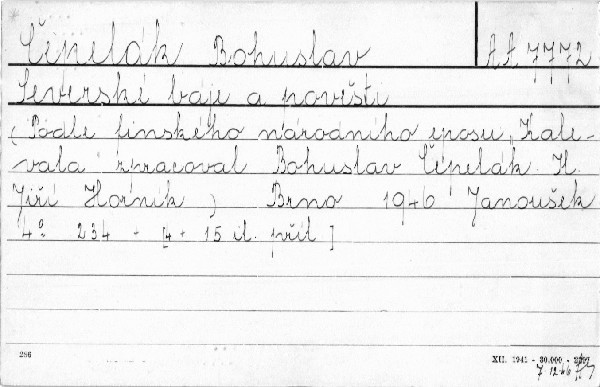 Čepelák Bohuslav AA 7772
Severské báje a pověsti
(Podle finského národního eposu „Kale-
vala" zpracoval Bohuslav Čepelák. Il.
Jiří Horník) Brno 1946 Janoušek
4° 234 - [4 + 15 il. příl.]
286 XII. 1941 - 30.000 -
7 12 46